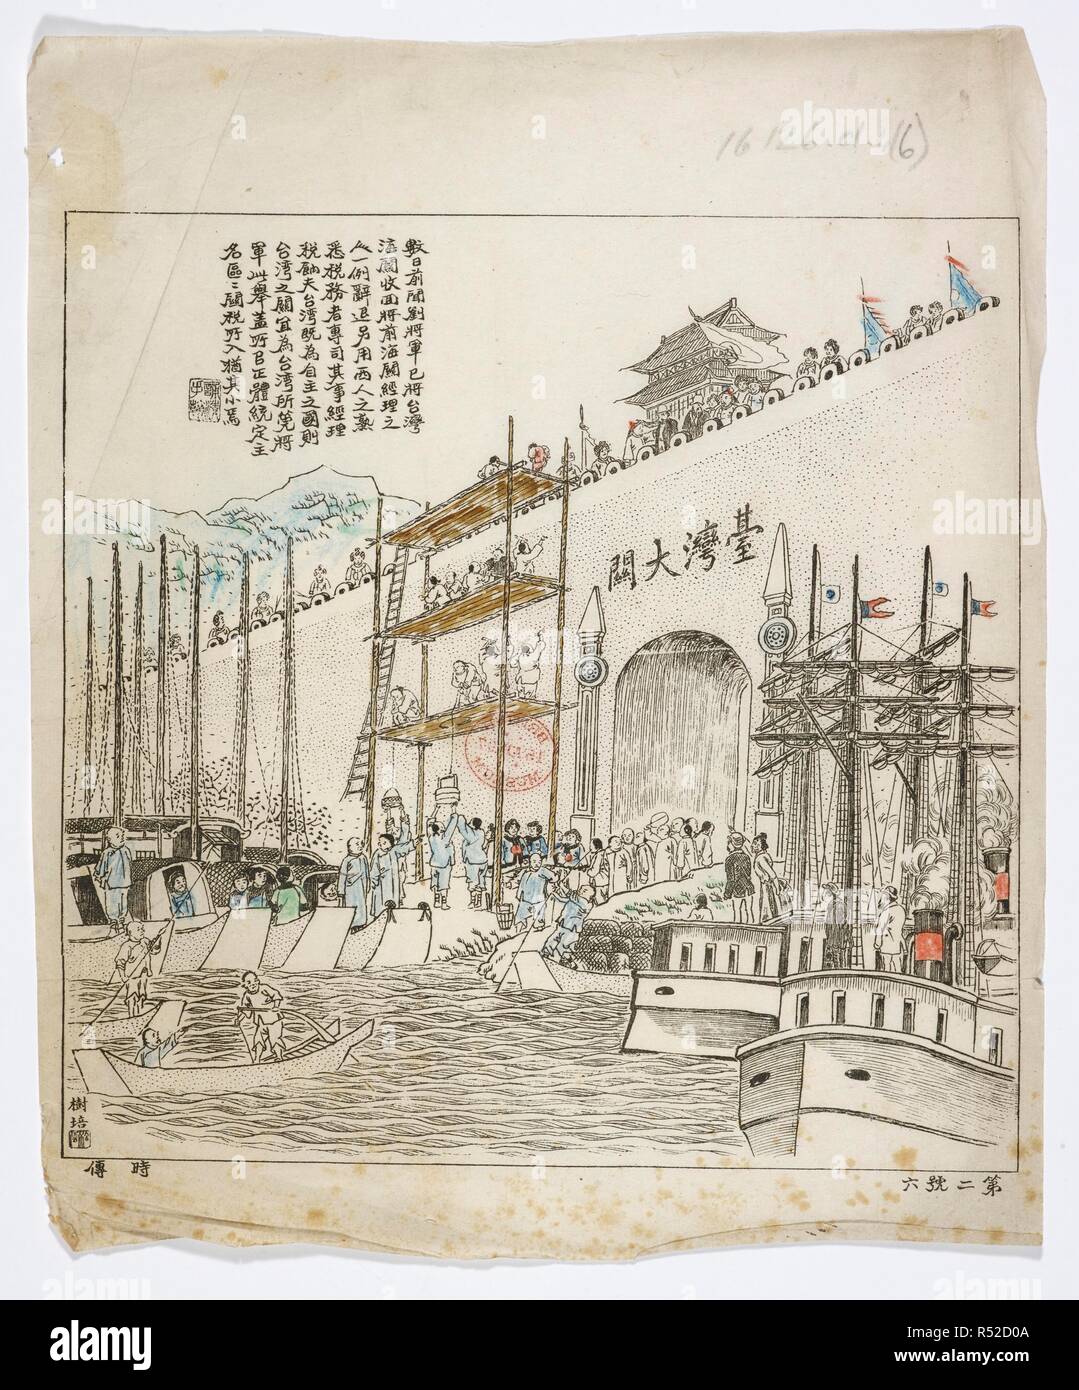 16126.d.(6)
數日前聞劉將軍已將台灣
海關收回將前海關經理之
人一例辭退另用西人之熟
悉稅務者專司其事經理
稅餉夫台灣既為自主之國則
台灣之關宜為台灣所筦將
軍此舉蓋所㠯正體統定主
名區區關稅所入猶其小焉
臺灣大關
樹培
時傳
第二號六
alamy
Image ID: R52D0A
www.alamy.com